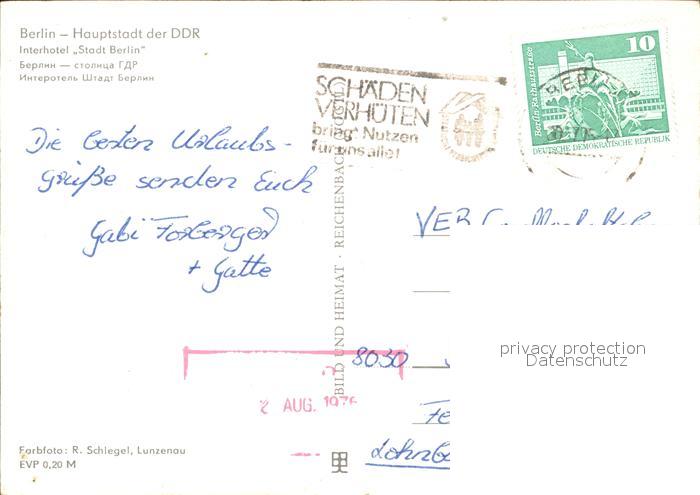 Berlin – Hauptstadt der DDR
Interhotel „Stadt Berlin"
Берлин — столица ГДР
Интеротель Штадт Берлин
SCHÄDEN
VERHÜTEN
bringt Nutzen
für uns alle!
10
Berlin-Rathausstraße
DEUTSCHE DEMOKRATISCHE REPUBLIK
BERLIN
Die besten Urlaubs-
grüße senden Euch
Gabi Forberger
+ Gatte
BILD UND HEIMAT · REICHENBACH
VEB
8030
privacy protection
Datenschutz
2 AUG. 1976
Farbfoto: R. Schlegel, Lunzenau
EVP 0,20 M